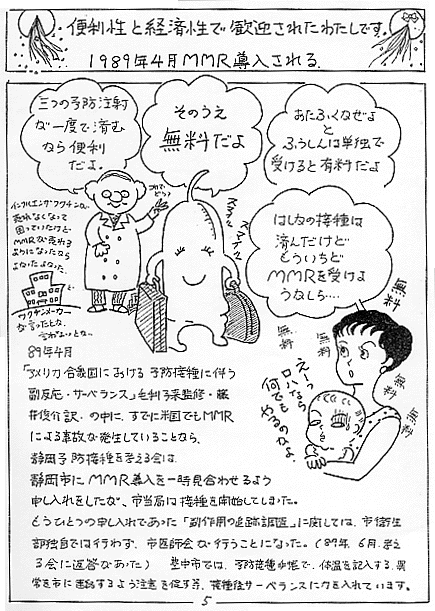 便利性と経済性で歓迎されたわたしです。
1989年4月MMR導入される。
三つの予防注射
が一度で済む
なら便利
だよ。
そのうえ
無料だよ
おたふくかぜよ
と
ふうしんは単独で
受けると有料だよ
インフルエンザワクチンが
売れなくなって
困っていたけど
MMRが売れる
ようになったなら
よかったよかった
と
ワクチンメーカー
が言ったとか
言わないとか…
これで
どう?
スマイル
スマイル
はしかの接種は
済んだけど
もういちど
MMRを受けよ
うかしら‥‥
無料
無料
無料
無料
無料
無料
えーっ
ロハなら
何でも
やるのかよ
89年4月
「アメリカ合衆国における予防接種に伴う
副反応・サーベランス」毛利子来監修・藤
井俊介訳の中に、すでに米国でもMMR
による事故が発生していることなら、
静岡予防接種を考える会は、
静岡市にMMR導入を一時見合わせるよう
申し入れをしたが、市当局は接種を開始してしまった。
もうひとつの申し入れであった「副作用の追跡調査」に関しては、市衛生
部独自では行わず、市医師会が行うことになった。(89年.6月.考え
る会に返答があった) 豊中市では、予防接種手帳で、体温を記入する、異
常を市に連絡するよう注意を促す等、接種後サーベランスに力を入れています。
5